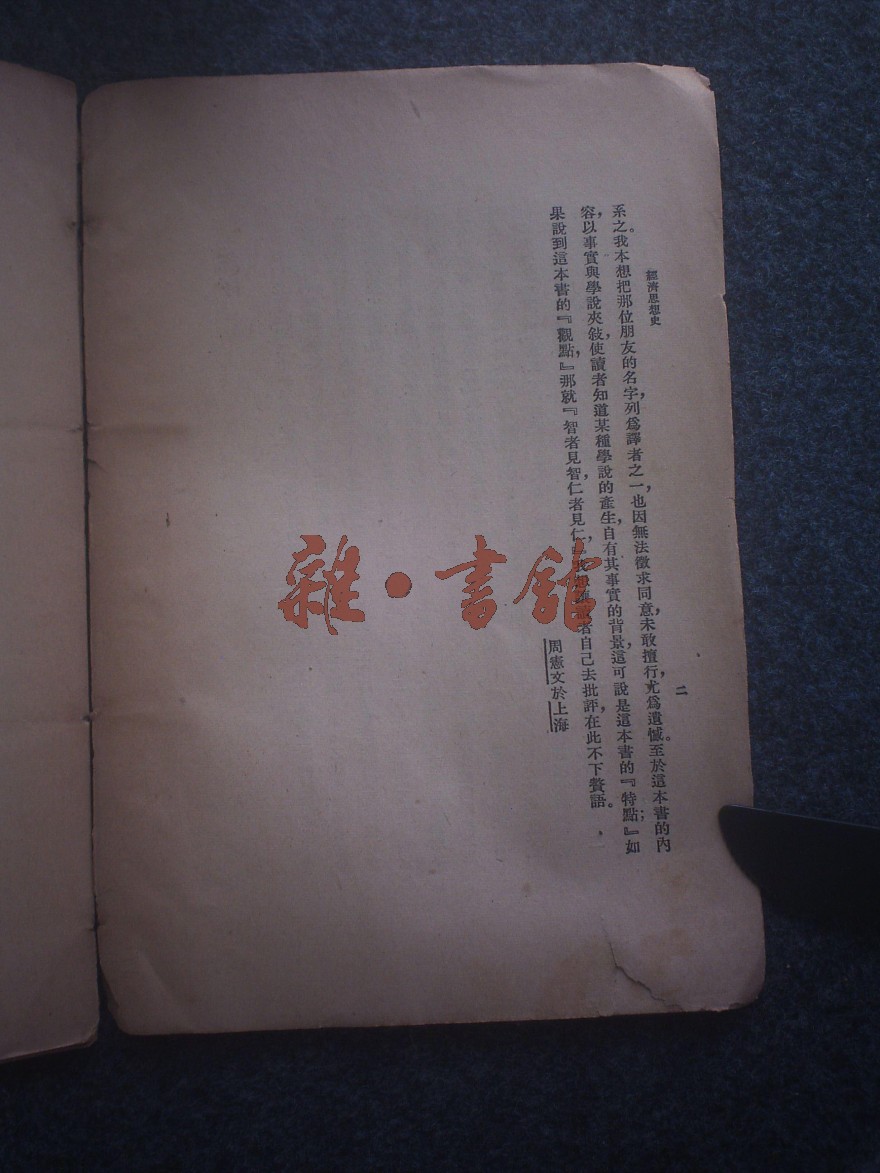 經濟思想史
二
系之。我本想把那位朋友的名字，列爲譯者之一，也因無法徵求同意，未敢擅行，尤爲遺憾。至於這本書的內
容，以事實與學說夾敍，使讀者知道某種學說的產生，自有其事實的背景，這可說是這本書的『特點』；如
果說到這本書的『觀點，』那就『智者見智，仁者見仁，』我想讓讀者自己去批評，在此不下贅語。
周憲文於上海
雜·書舘